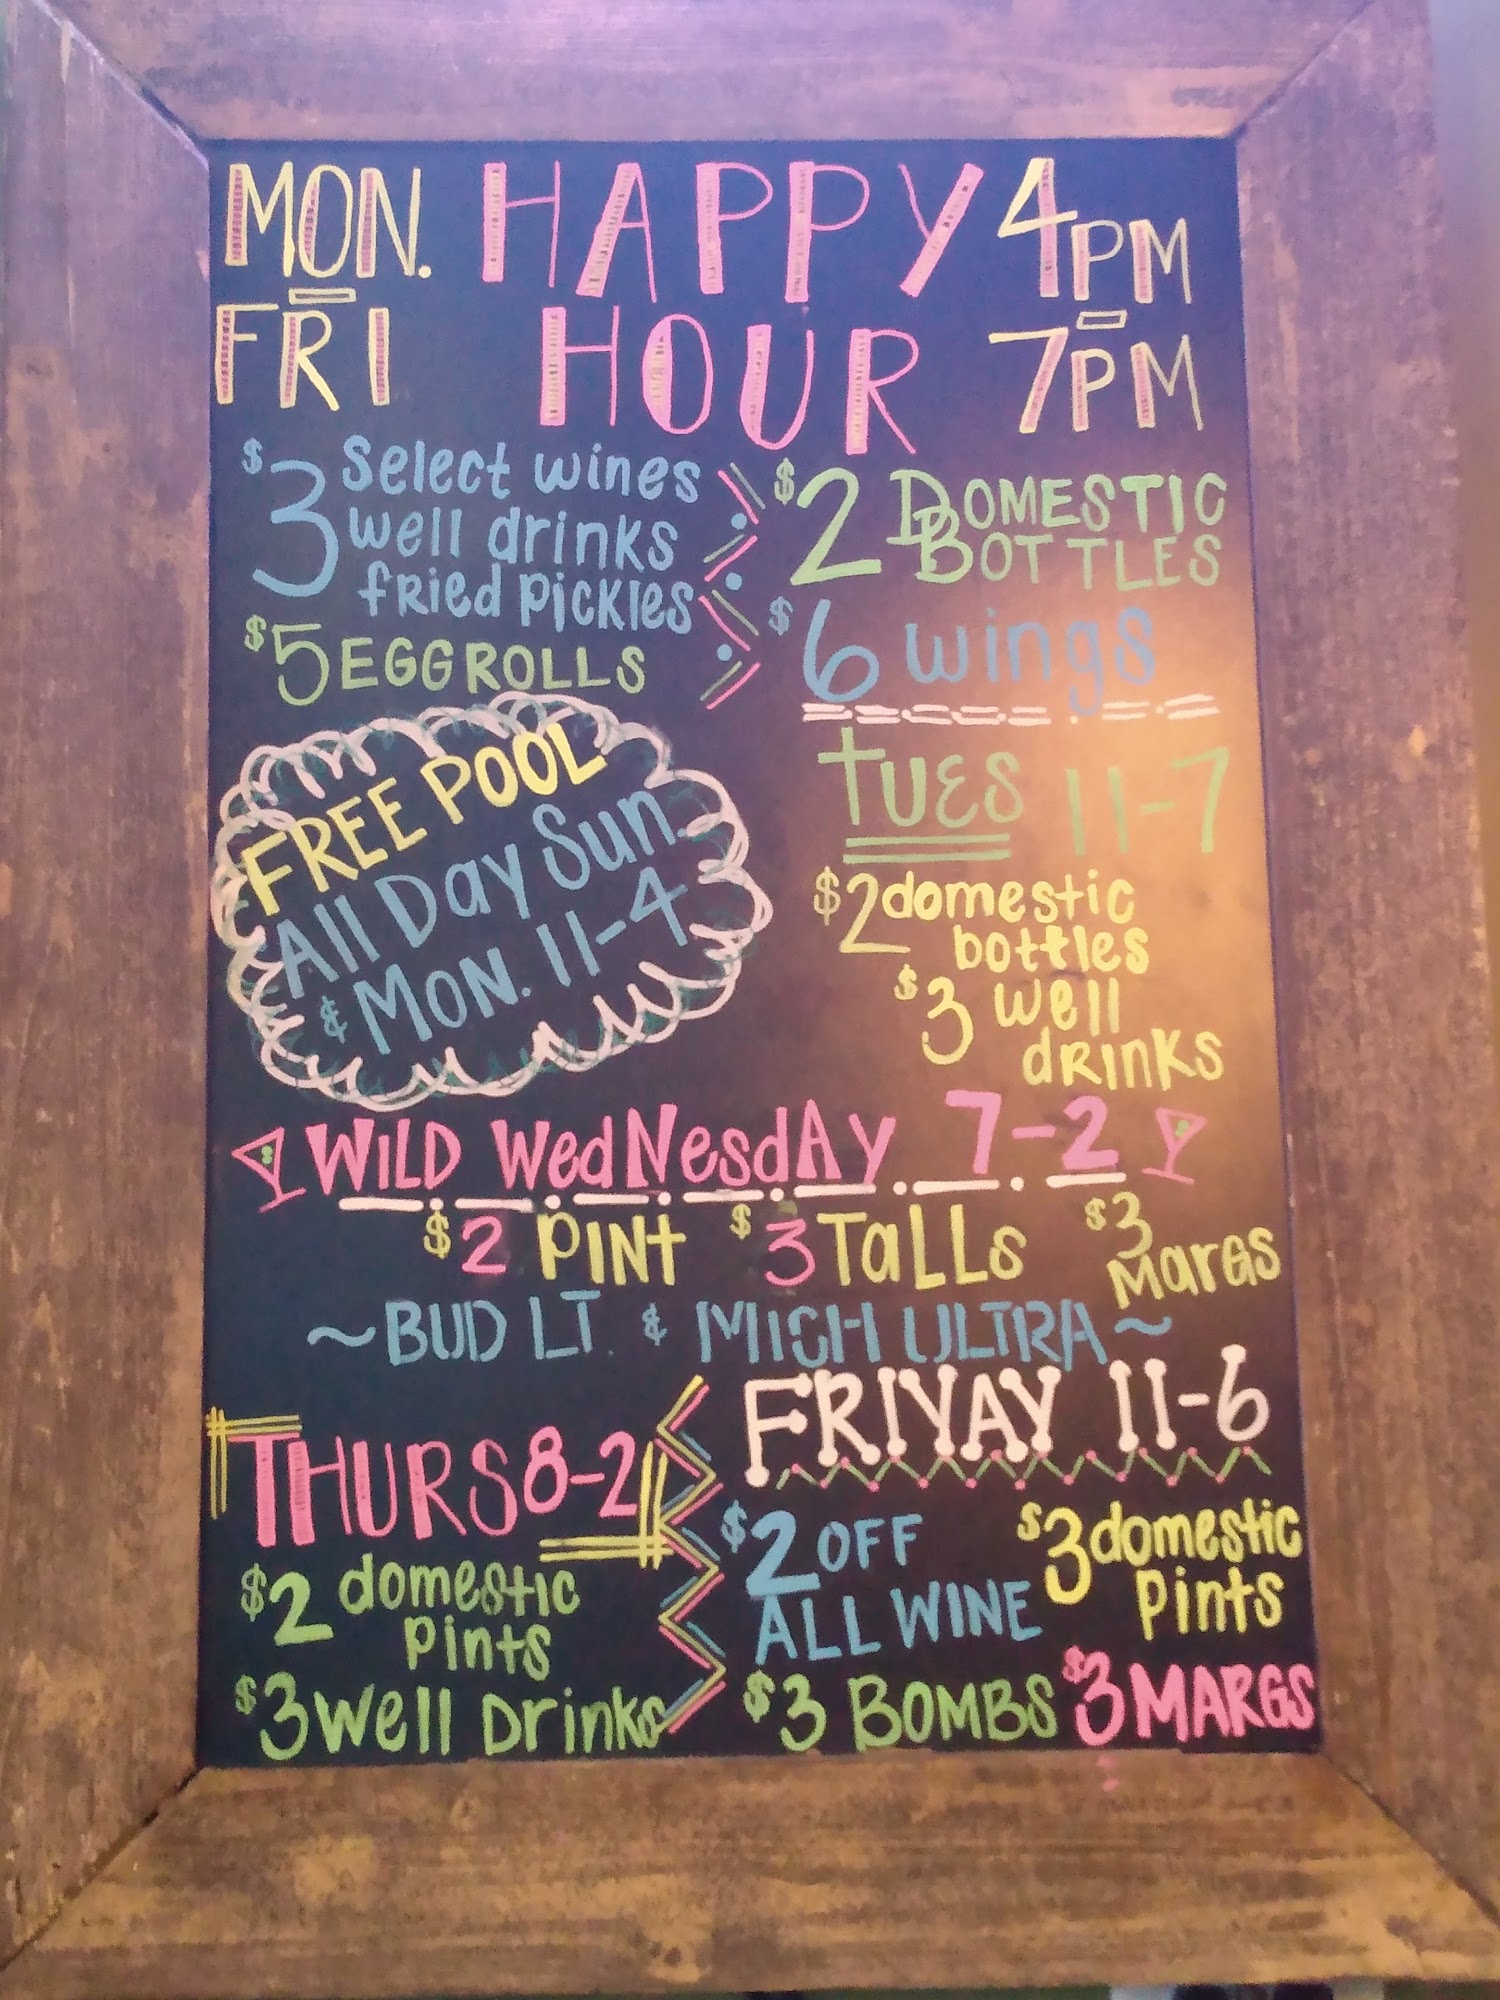 MON. HAPPY 4PM
–
FRI HOUR 7PM
$3 select wines
well drinks
fried pickles
$5 EGGROLLS
$2 DOMESTIC
BOTTLES
$6 wings
FREE POOL
All Day Sun.
& MON. 11-4
TUES 11-7
$2 domestic
bottles
$3 well
drinks
WILD WedNesdAy 7-2
$2 PINt $3 TaLLs $3 MarGs
~BUD LT. & MICH ULTRA~
THURS 8-2
$2 domestic
pints
$3 well Drinks
FRIYAY 11-6
$2 OFF
ALL WINE
$3 domestic
pints
$3 BOMBS $3 MARGS